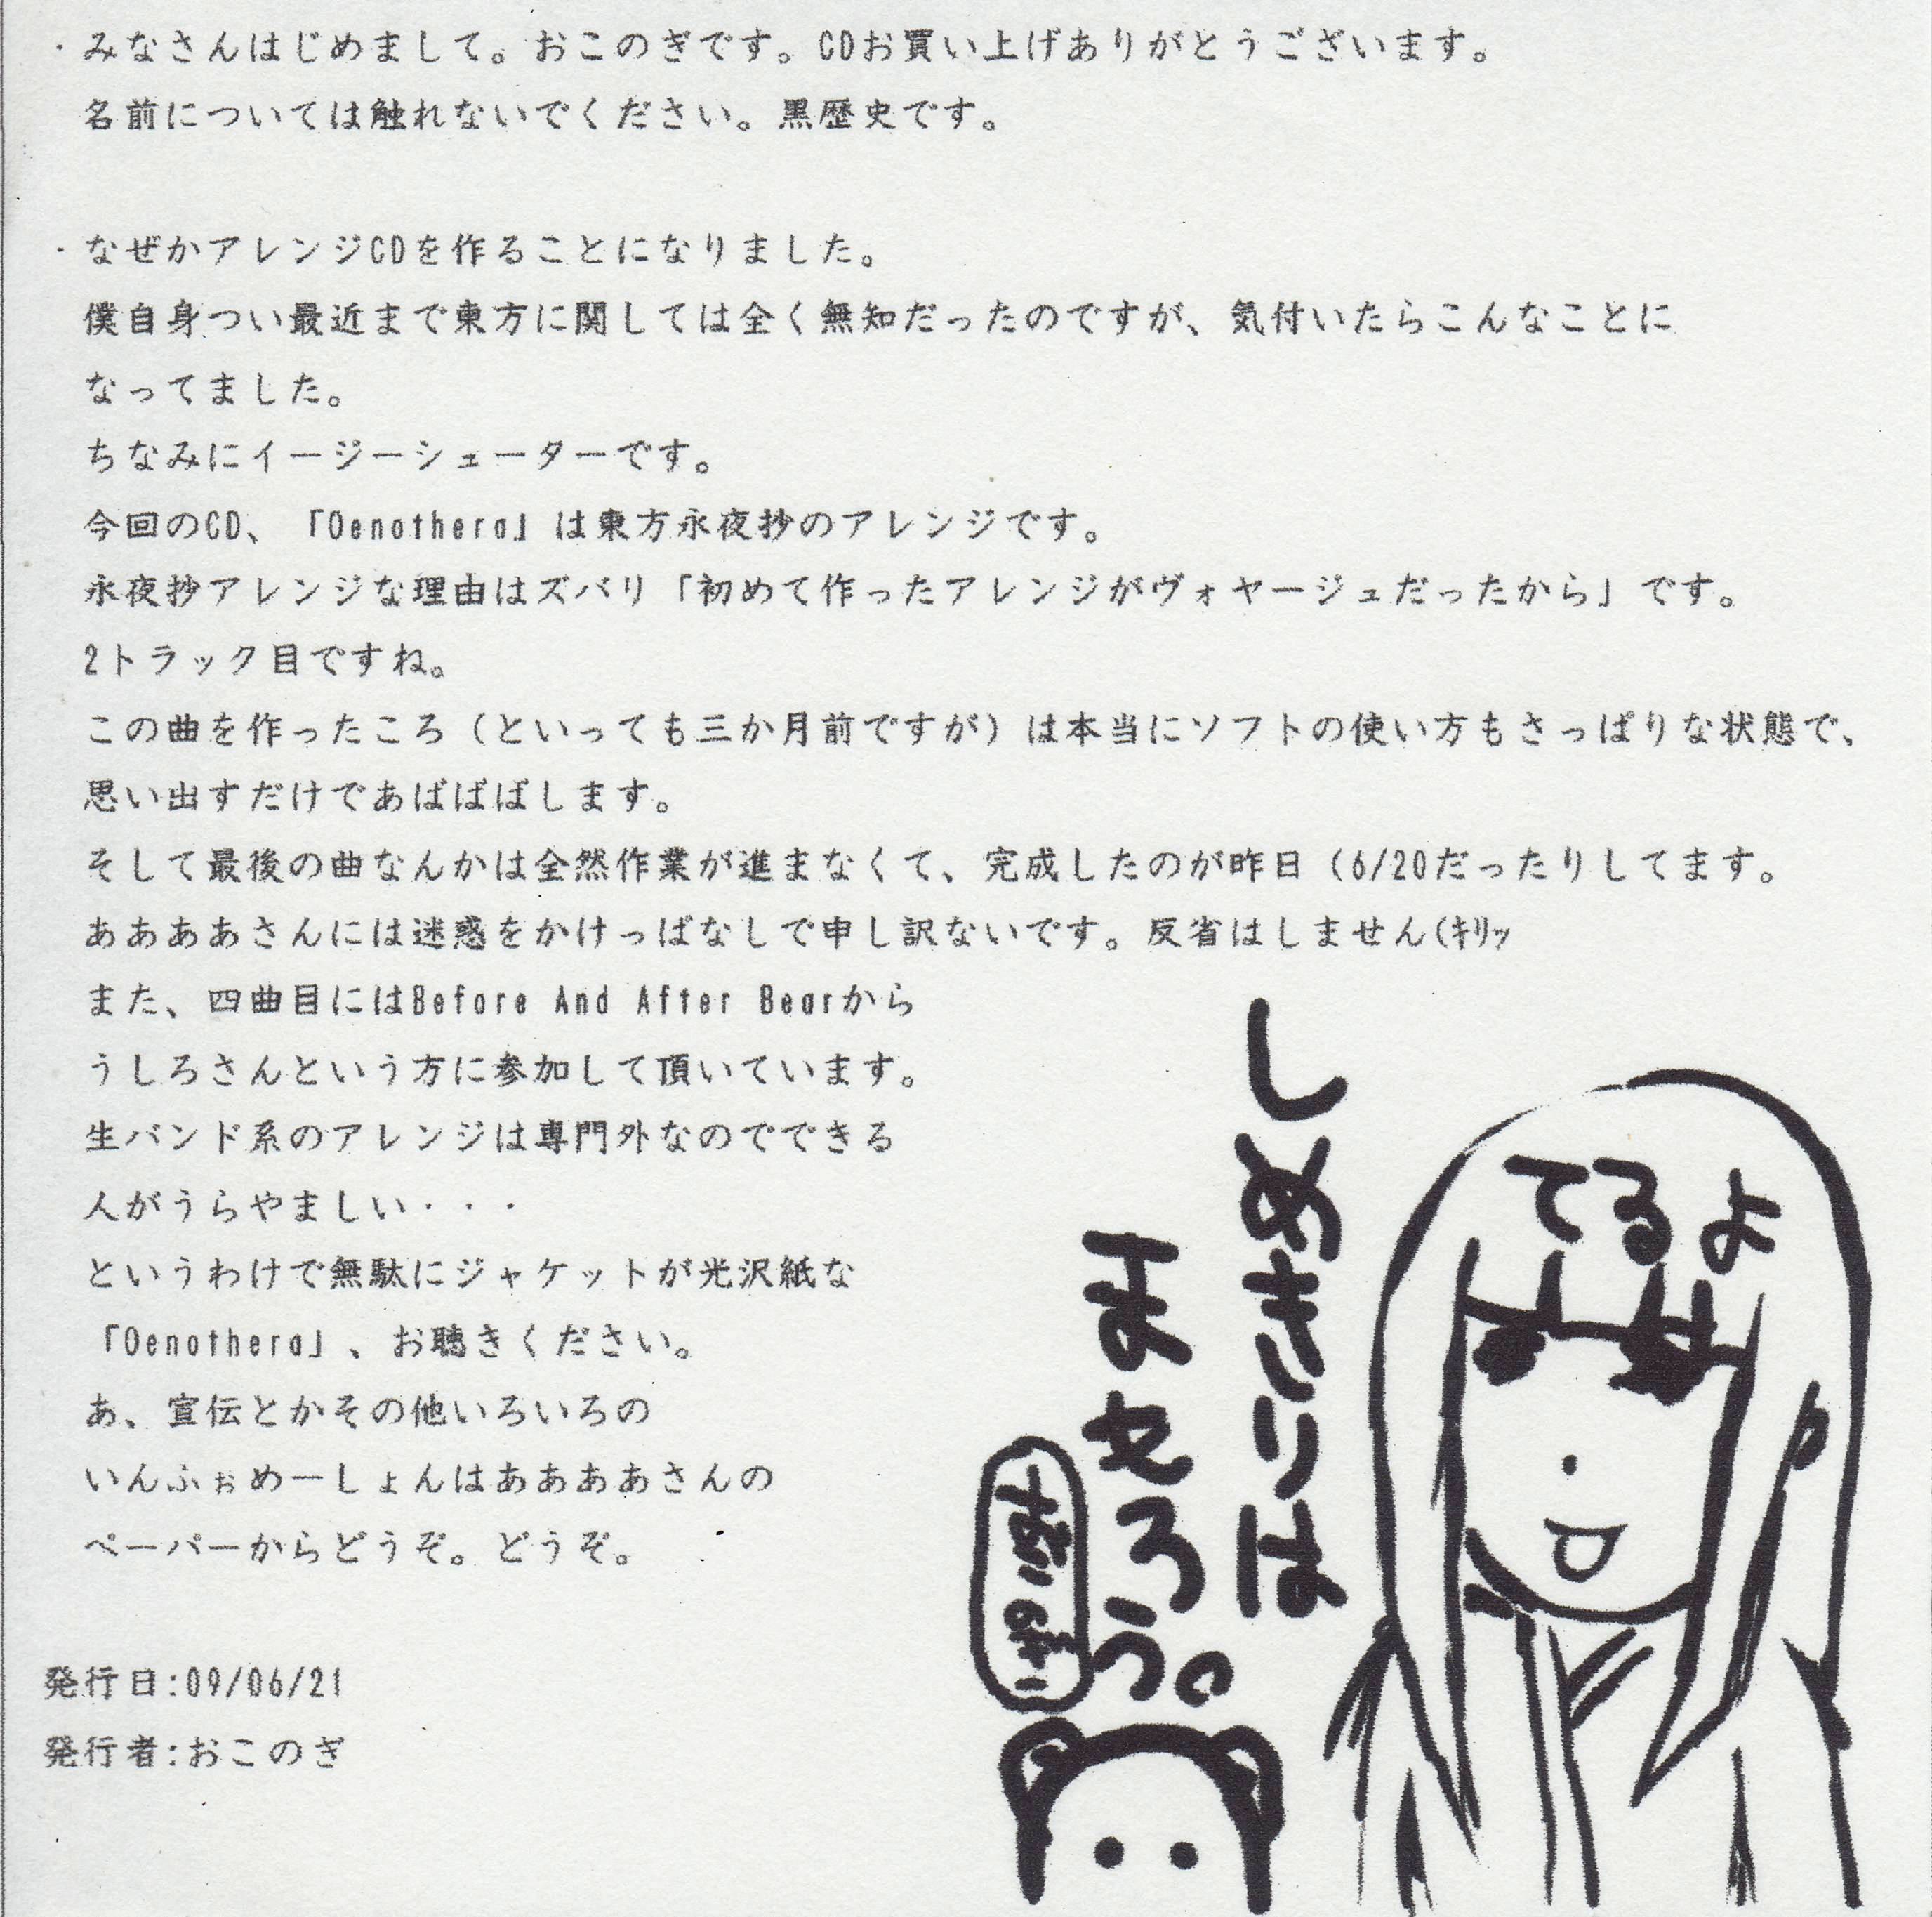 ・みなさんはじめまして。おこのぎです。CDお買い上げありがとうございます。
名前については触れないでください。黒歴史です。
・なぜかアレンジCDを作ることになりました。
僕自身つい最近まで東方に関しては全く無知だったのですが、気付いたらこんなことに
なってました。
ちなみにイージーシューターです。
今回のCD、「Oenothera」は東方永夜抄のアレンジです。
永夜抄アレンジな理由はズバリ「初めて作ったアレンジがヴォヤージュだったから」です。
2トラック目ですね。
この曲を作ったころ（といっても三か月前ですが）は本当にソフトの使い方もさっぱりな状態で、
思い出すだけであばばばします。
そして最後の曲なんかは全然作業が進まなくて、完成したのが昨日（6/20だったりしてます。
ああああさんには迷惑をかけっぱなしで申し訳ないです。反省はしません(ｷﾘｯ
また、四曲目にはBefore And After Bearから
うしろさんという方に参加して頂いています。
生バンド系のアレンジは専門外なのでできる
人がうらやましい・・・
というわけで無駄にジャケットが光沢紙な
「Oenothera」、お聴きください。
あ、宣伝とかその他いろいろの
いんふぉめーしょんはああああさんの
ペーパーからどうぞ。どうぞ。
発行日:09/06/21
発行者:おこのぎ
てるよ
しめきりは
まもろう。